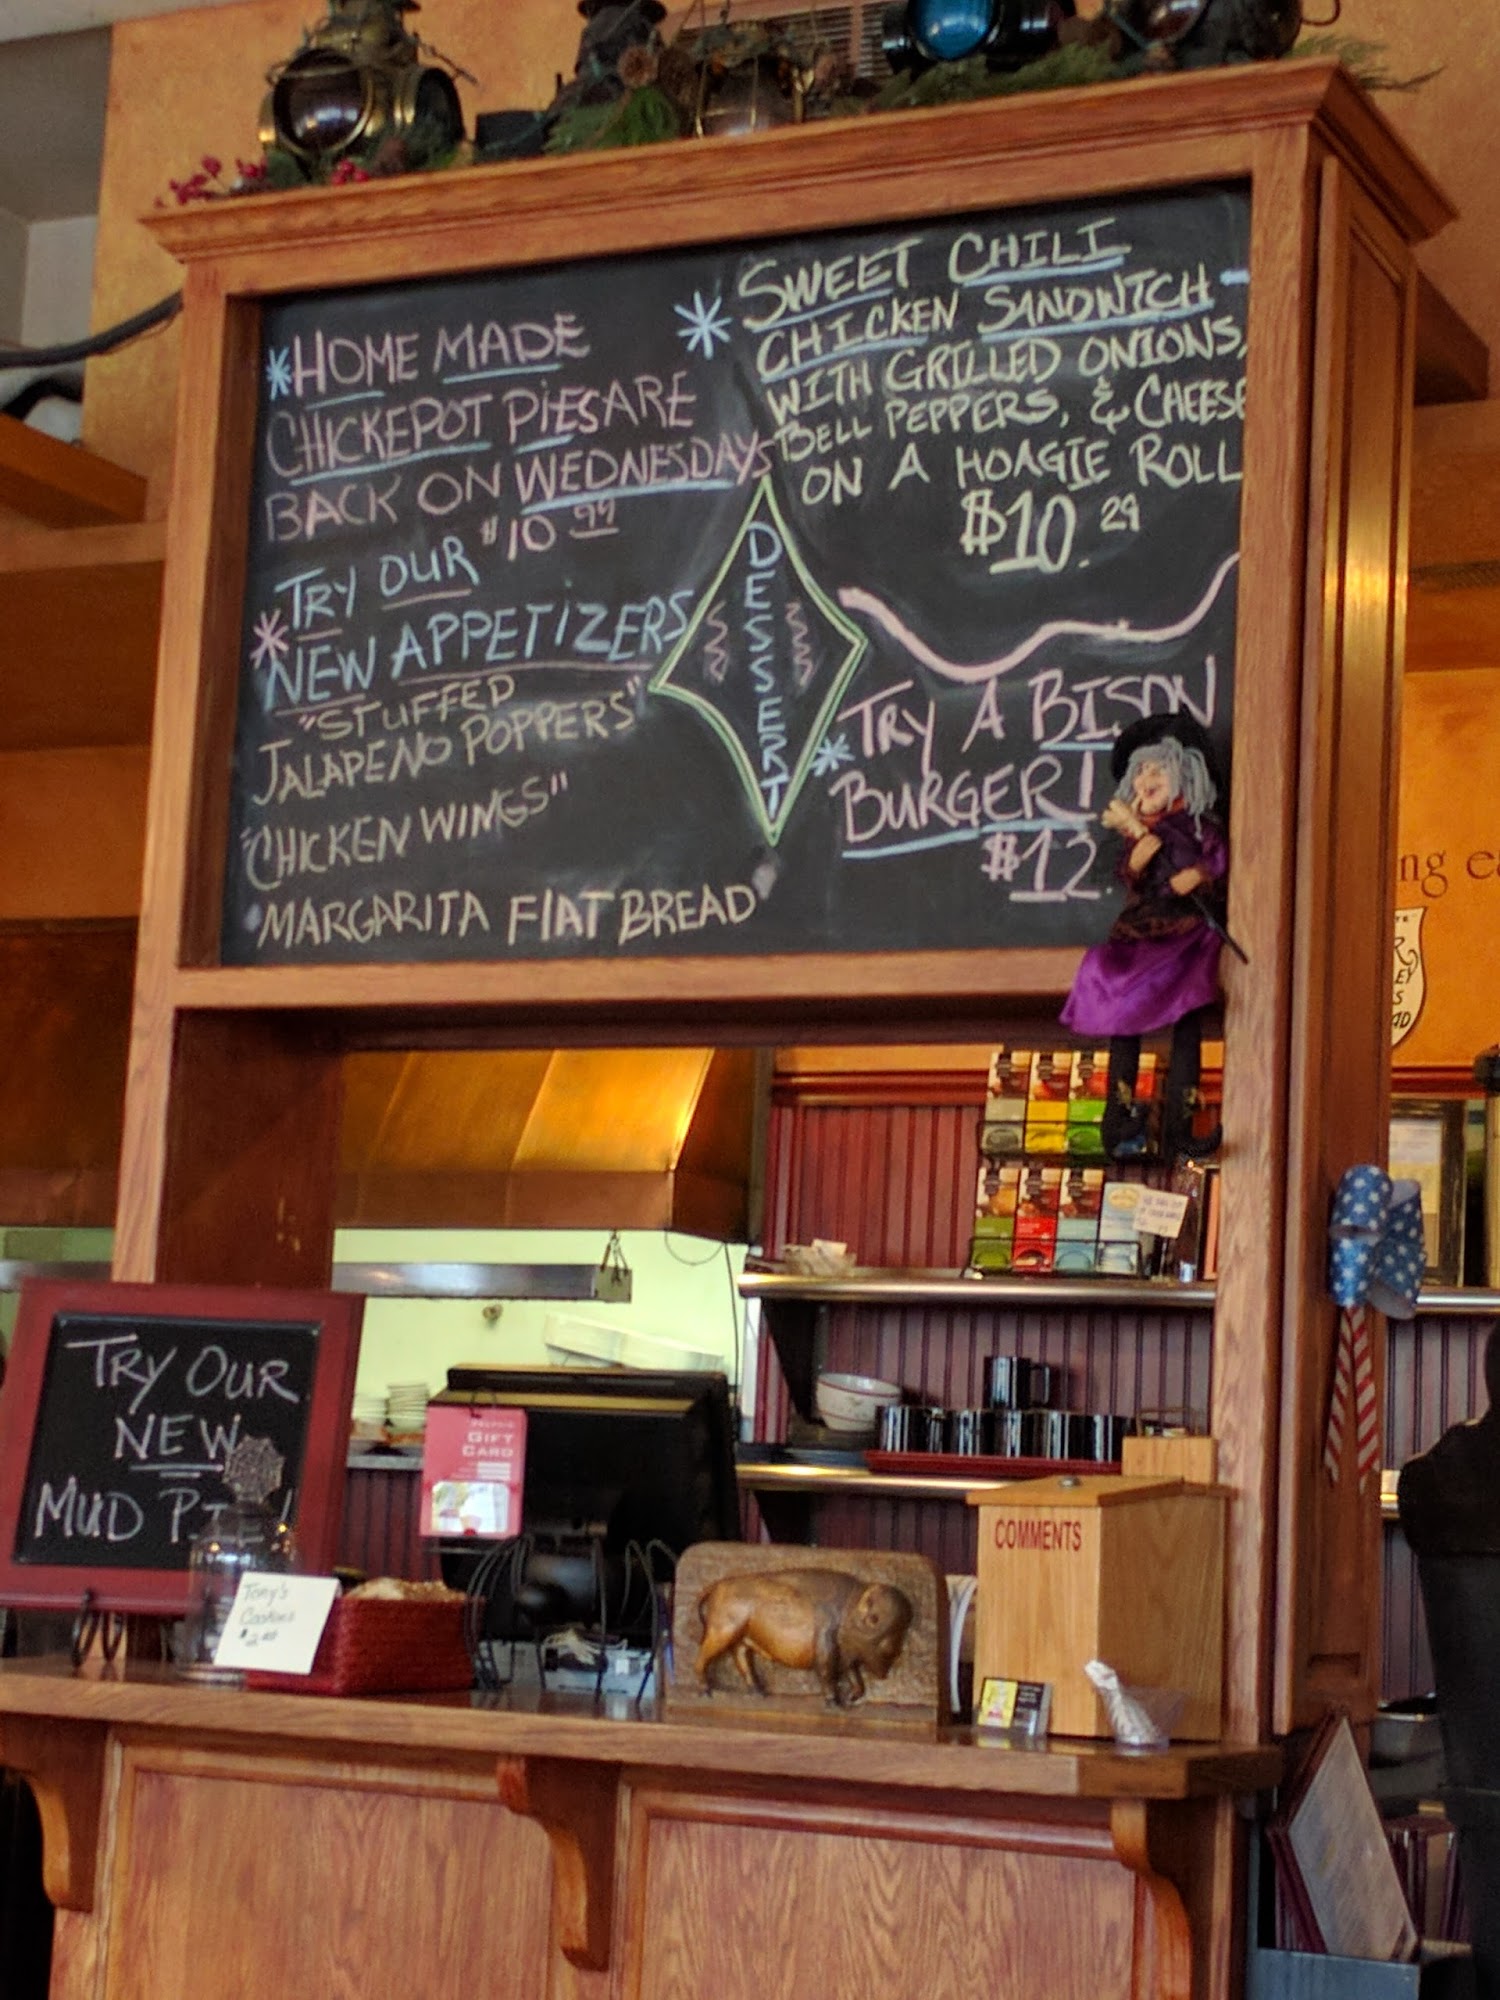 *HOME MADE
CHICKEPOT PIES ARE
BACK ON WEDNESDAYS
$10 99
*TRY OUR
NEW APPETIZERS
"STUFFED
JALAPENO POPPERS"
"CHICKEN WINGS"
"MARGARITA FlAT BREAD"
DESSERT
*SWEET CHILI
CHICKEN SANDWICH-
WITH GRILLED ONIONS,
BELL PEPPERS, & CHEESE
ON A HOAGIE ROLL
$10. 29
*TRY A BISON
BURGER!
$12.
TRY OUR
NEW
MUD PIE!
GIFT
CARD
Tony's
Cookies
COMMENTS
ng ea